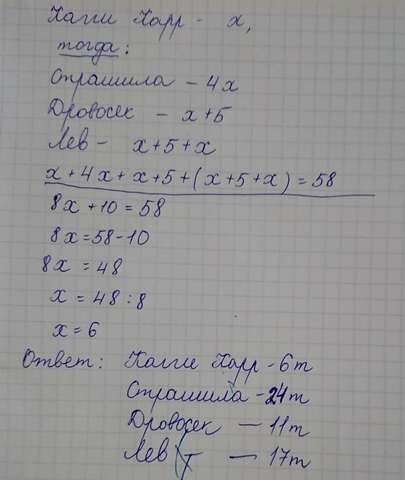 Кагги Карр - x,
тогда:
Страшила - 4x
Дровосек - x+5
Лев - x+5+x
x+4x+x+5+(x+5+x)=58
8x+10=58
8x=58-10
8x=48
x=48:8
x=6
Ответ: Кагги Карр - 6т
Страшила - 24т
Дровосек - 11т
Лев - 17т